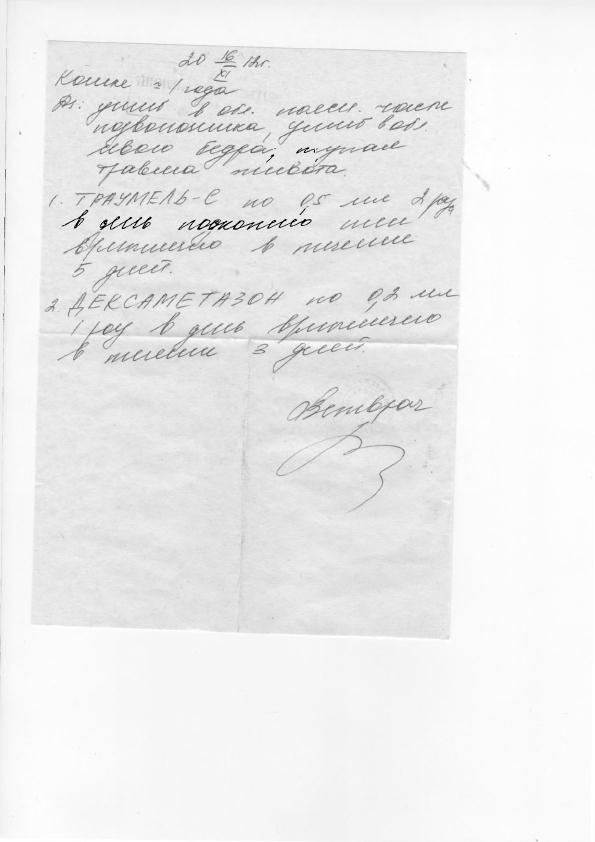 20 16/XI 12г.
Кошке ≈ 1 года
Дз: ушиб в обл. поясн. части
позвоночника, ушиб в обл.
левого бедра, тупая
травма живота.
1. ТРАУМЕЛЬ-С по 0,5 мл 2 раза
в день подкожно или
в/мышечно в течение
5 дней.
2. ДЕКСАМЕТАЗОН по 0,2 мл
1 раз в день в/мышечно
в течении 3 дней.
Ветврач